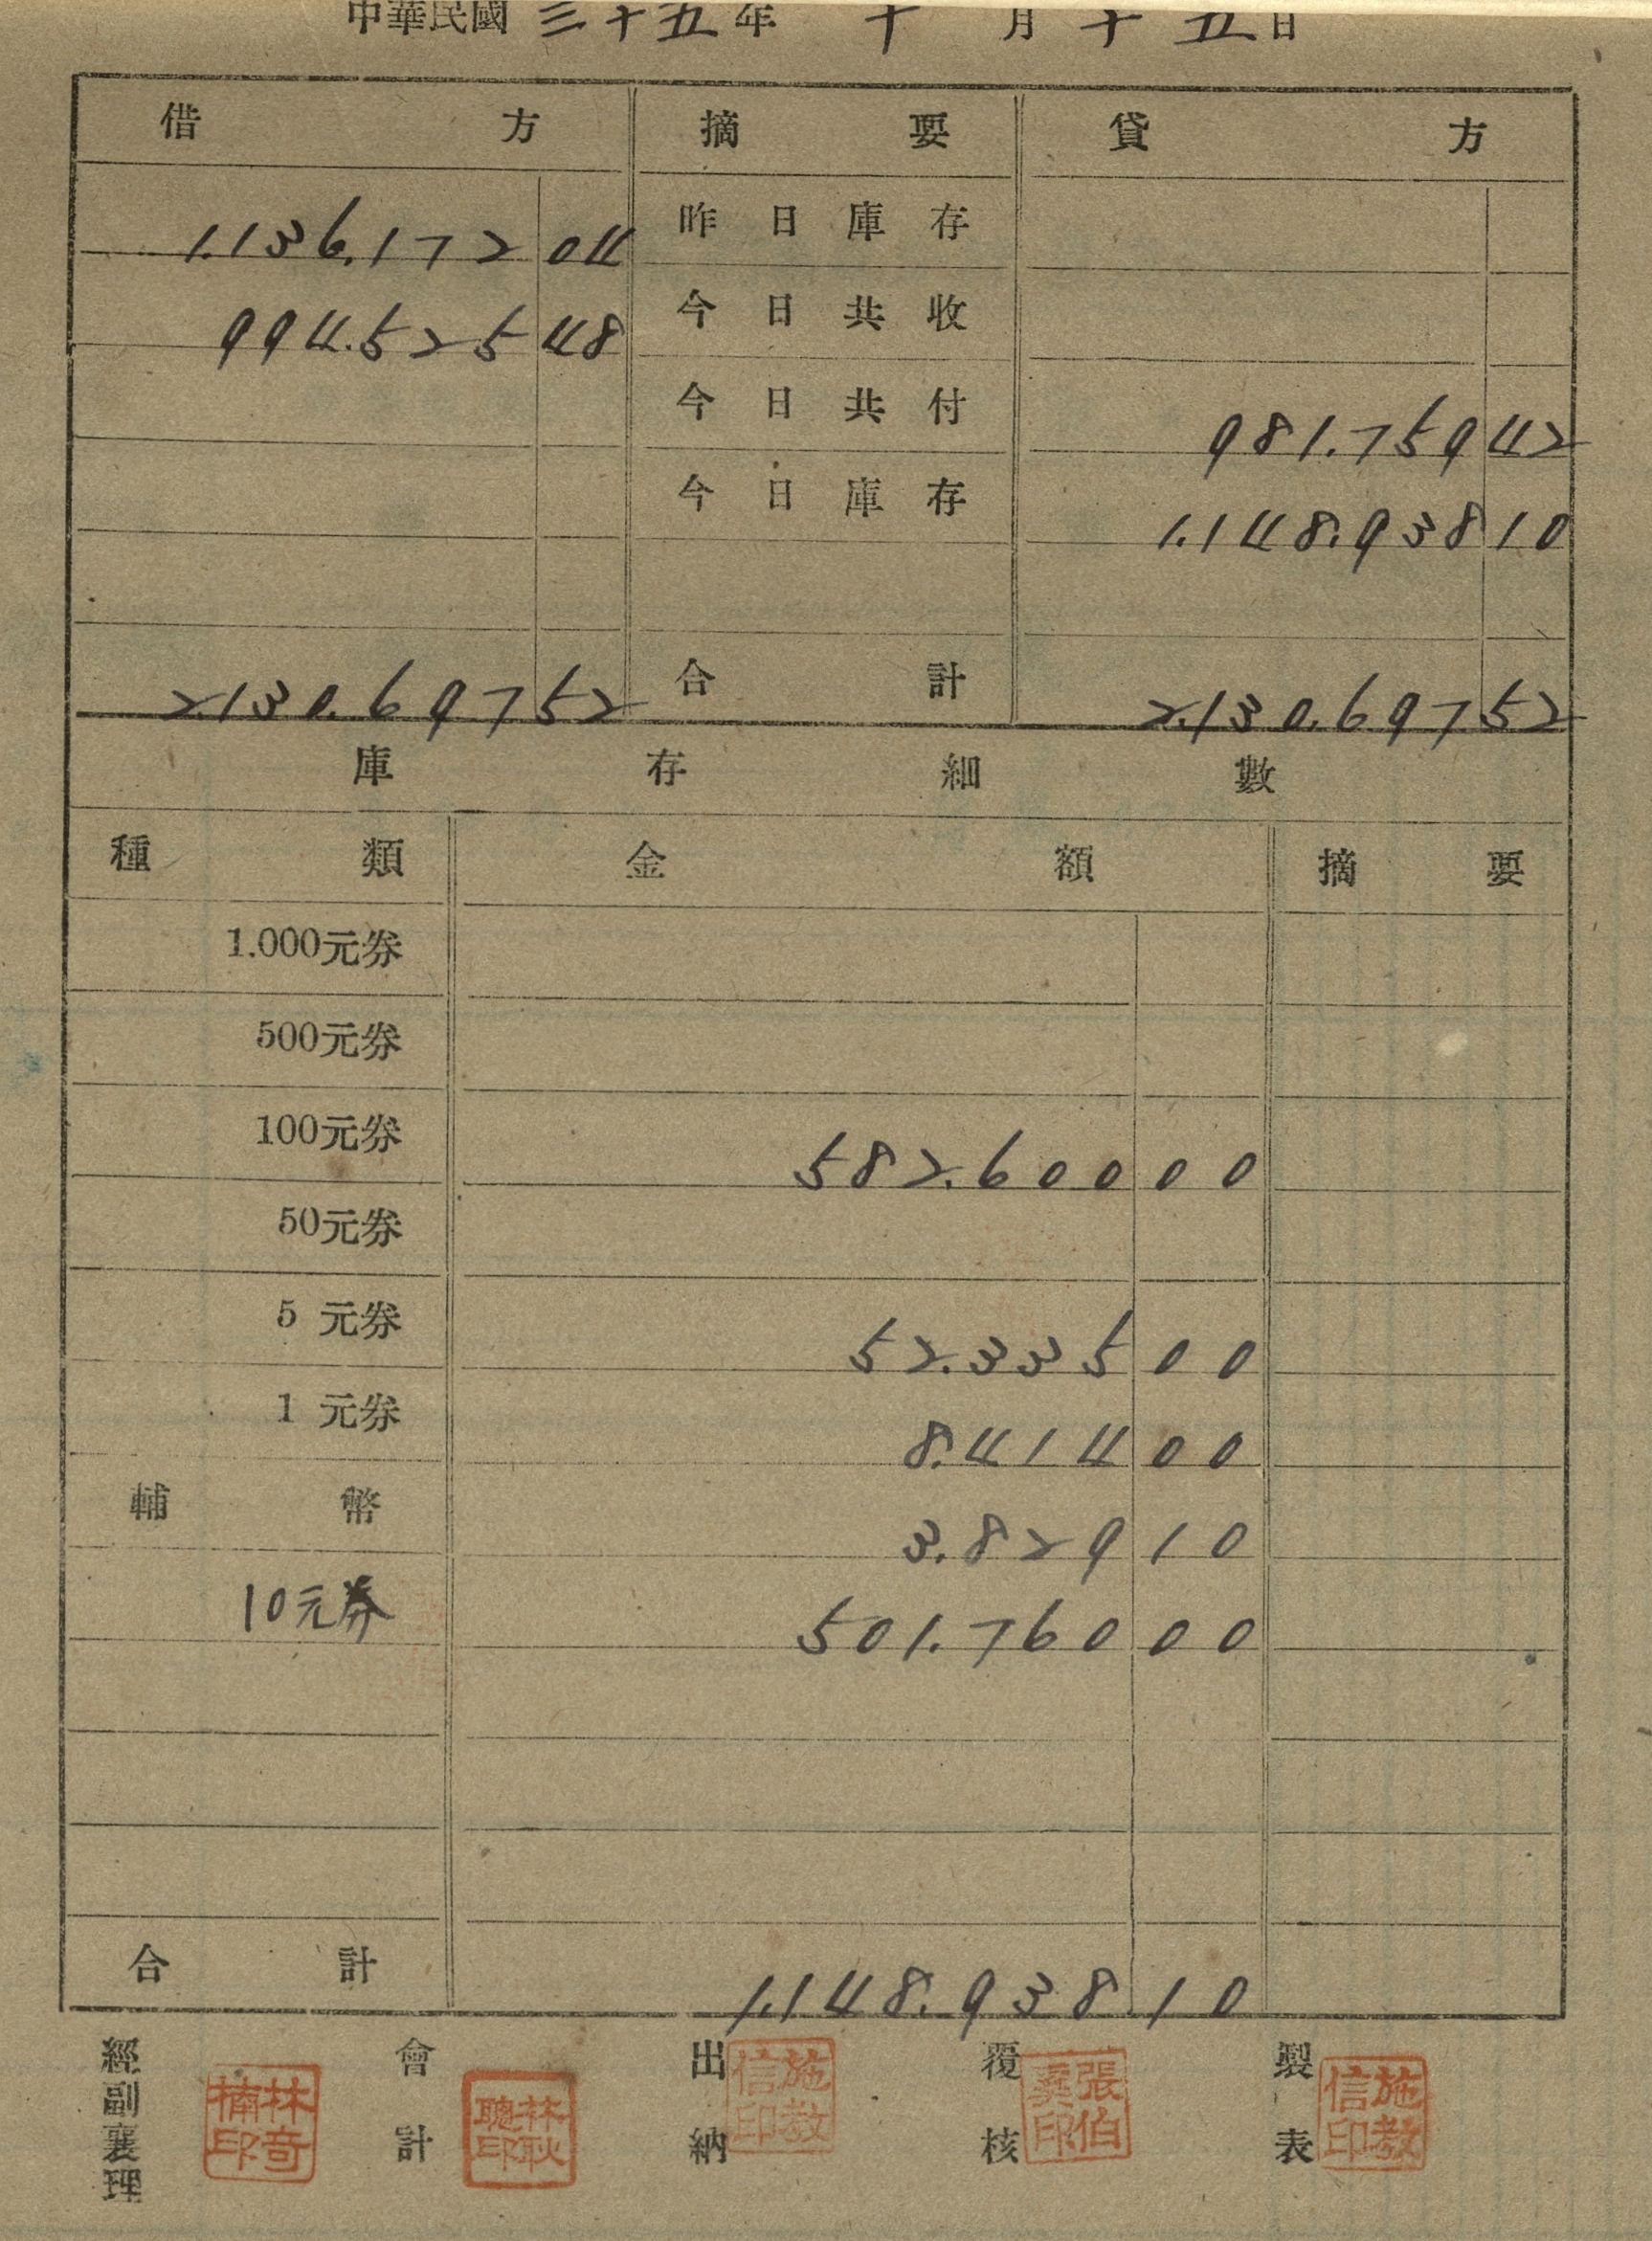 中華民國 三十五年 十 月 十 五日
借 方 摘 要 貸 方
1.136.172 04 昨日庫存
994.525 48 今日共收
今日共付 981.759 42
今日庫存 1.148.938 10
2.130.697 52 合 計 2.130.697 52
庫 存 細 數
種 類 金 額 摘 要
1.000元券
500元券
100元券 582.600 00
50元券
5 元券 52.335 00
1 元券 8.414 00
輔 幣 3.829 10
10元券 501.760 00
合 計 1.148.938 10
經副襄理 林奇楠印 會計 林耿聰印 出納 施教信印 覆核 張伯印 製表 施教信印